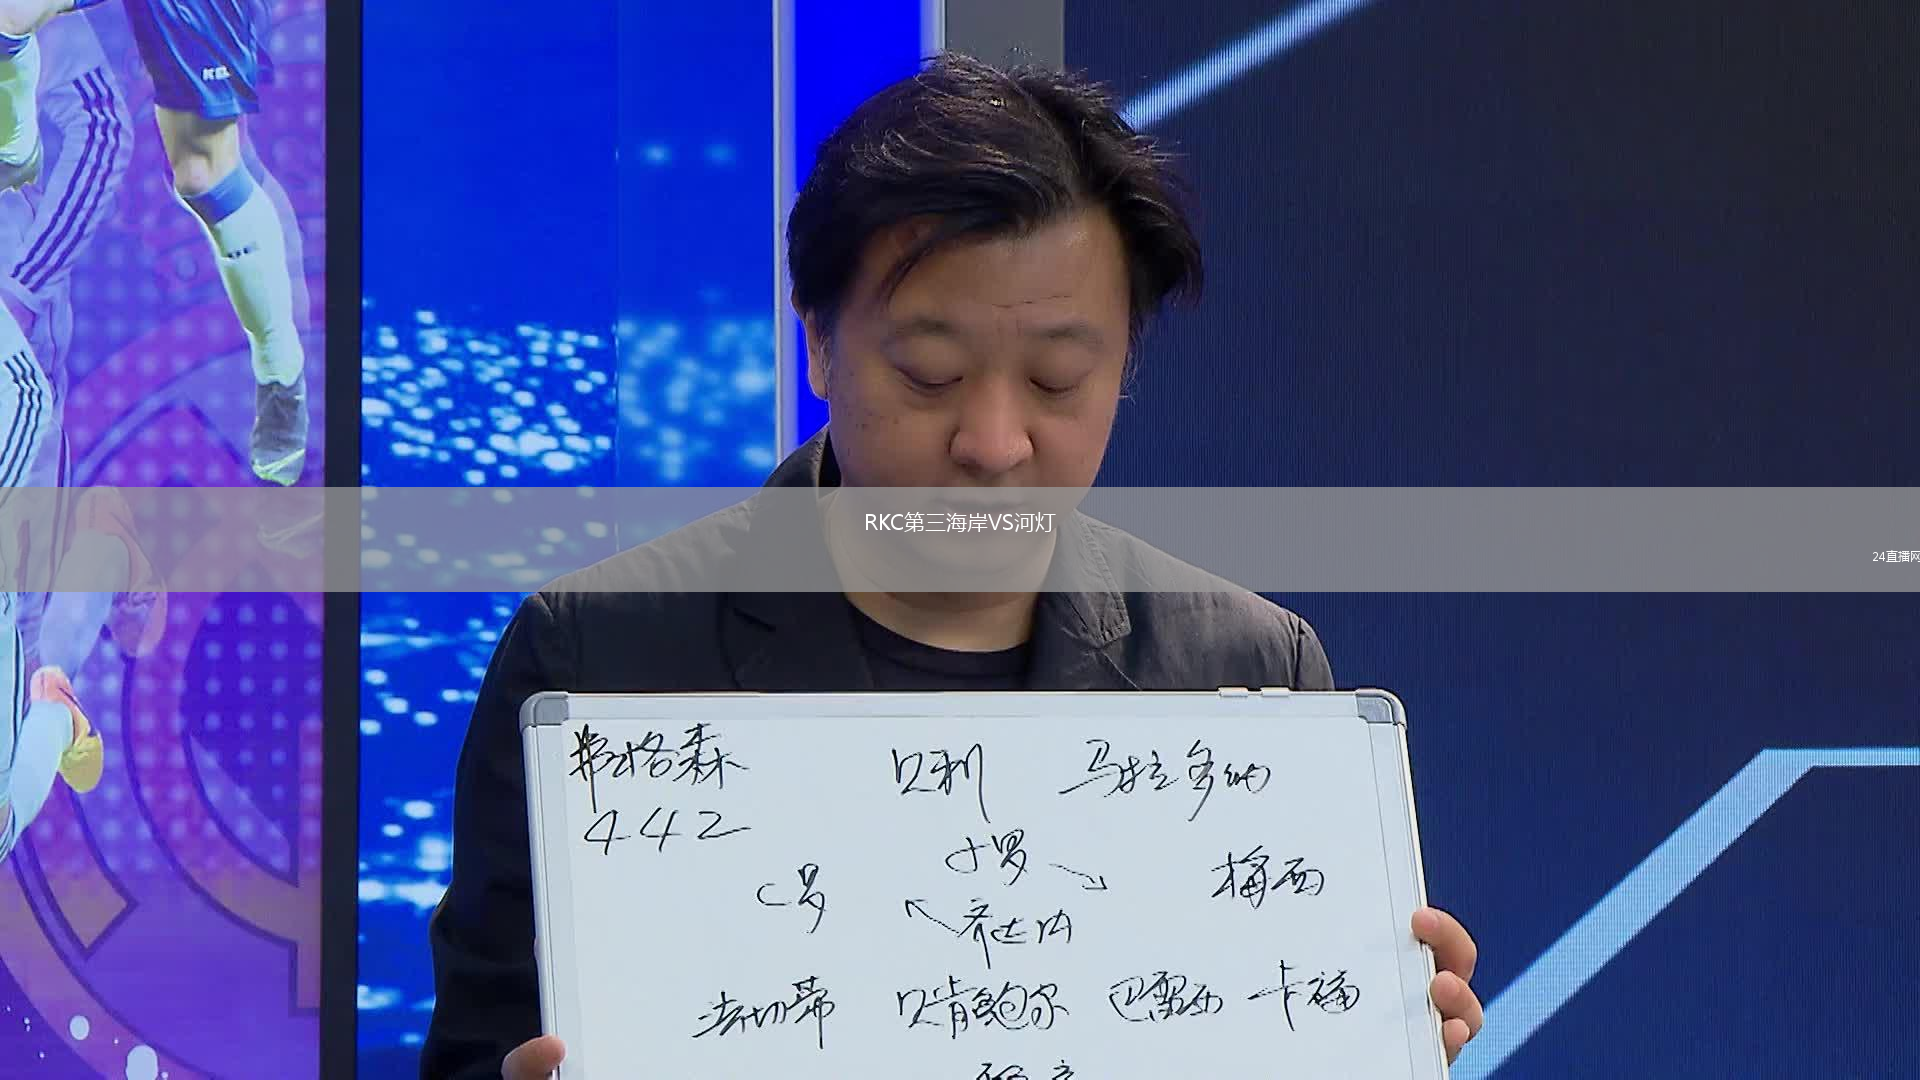 KEL
RKC第三海岸VS河灯
24直播网
弗格森 贝利 马拉多纳
442
小罗
C罗 梅西
齐达内
法切蒂 贝肯鲍尔 巴雷西 卡福